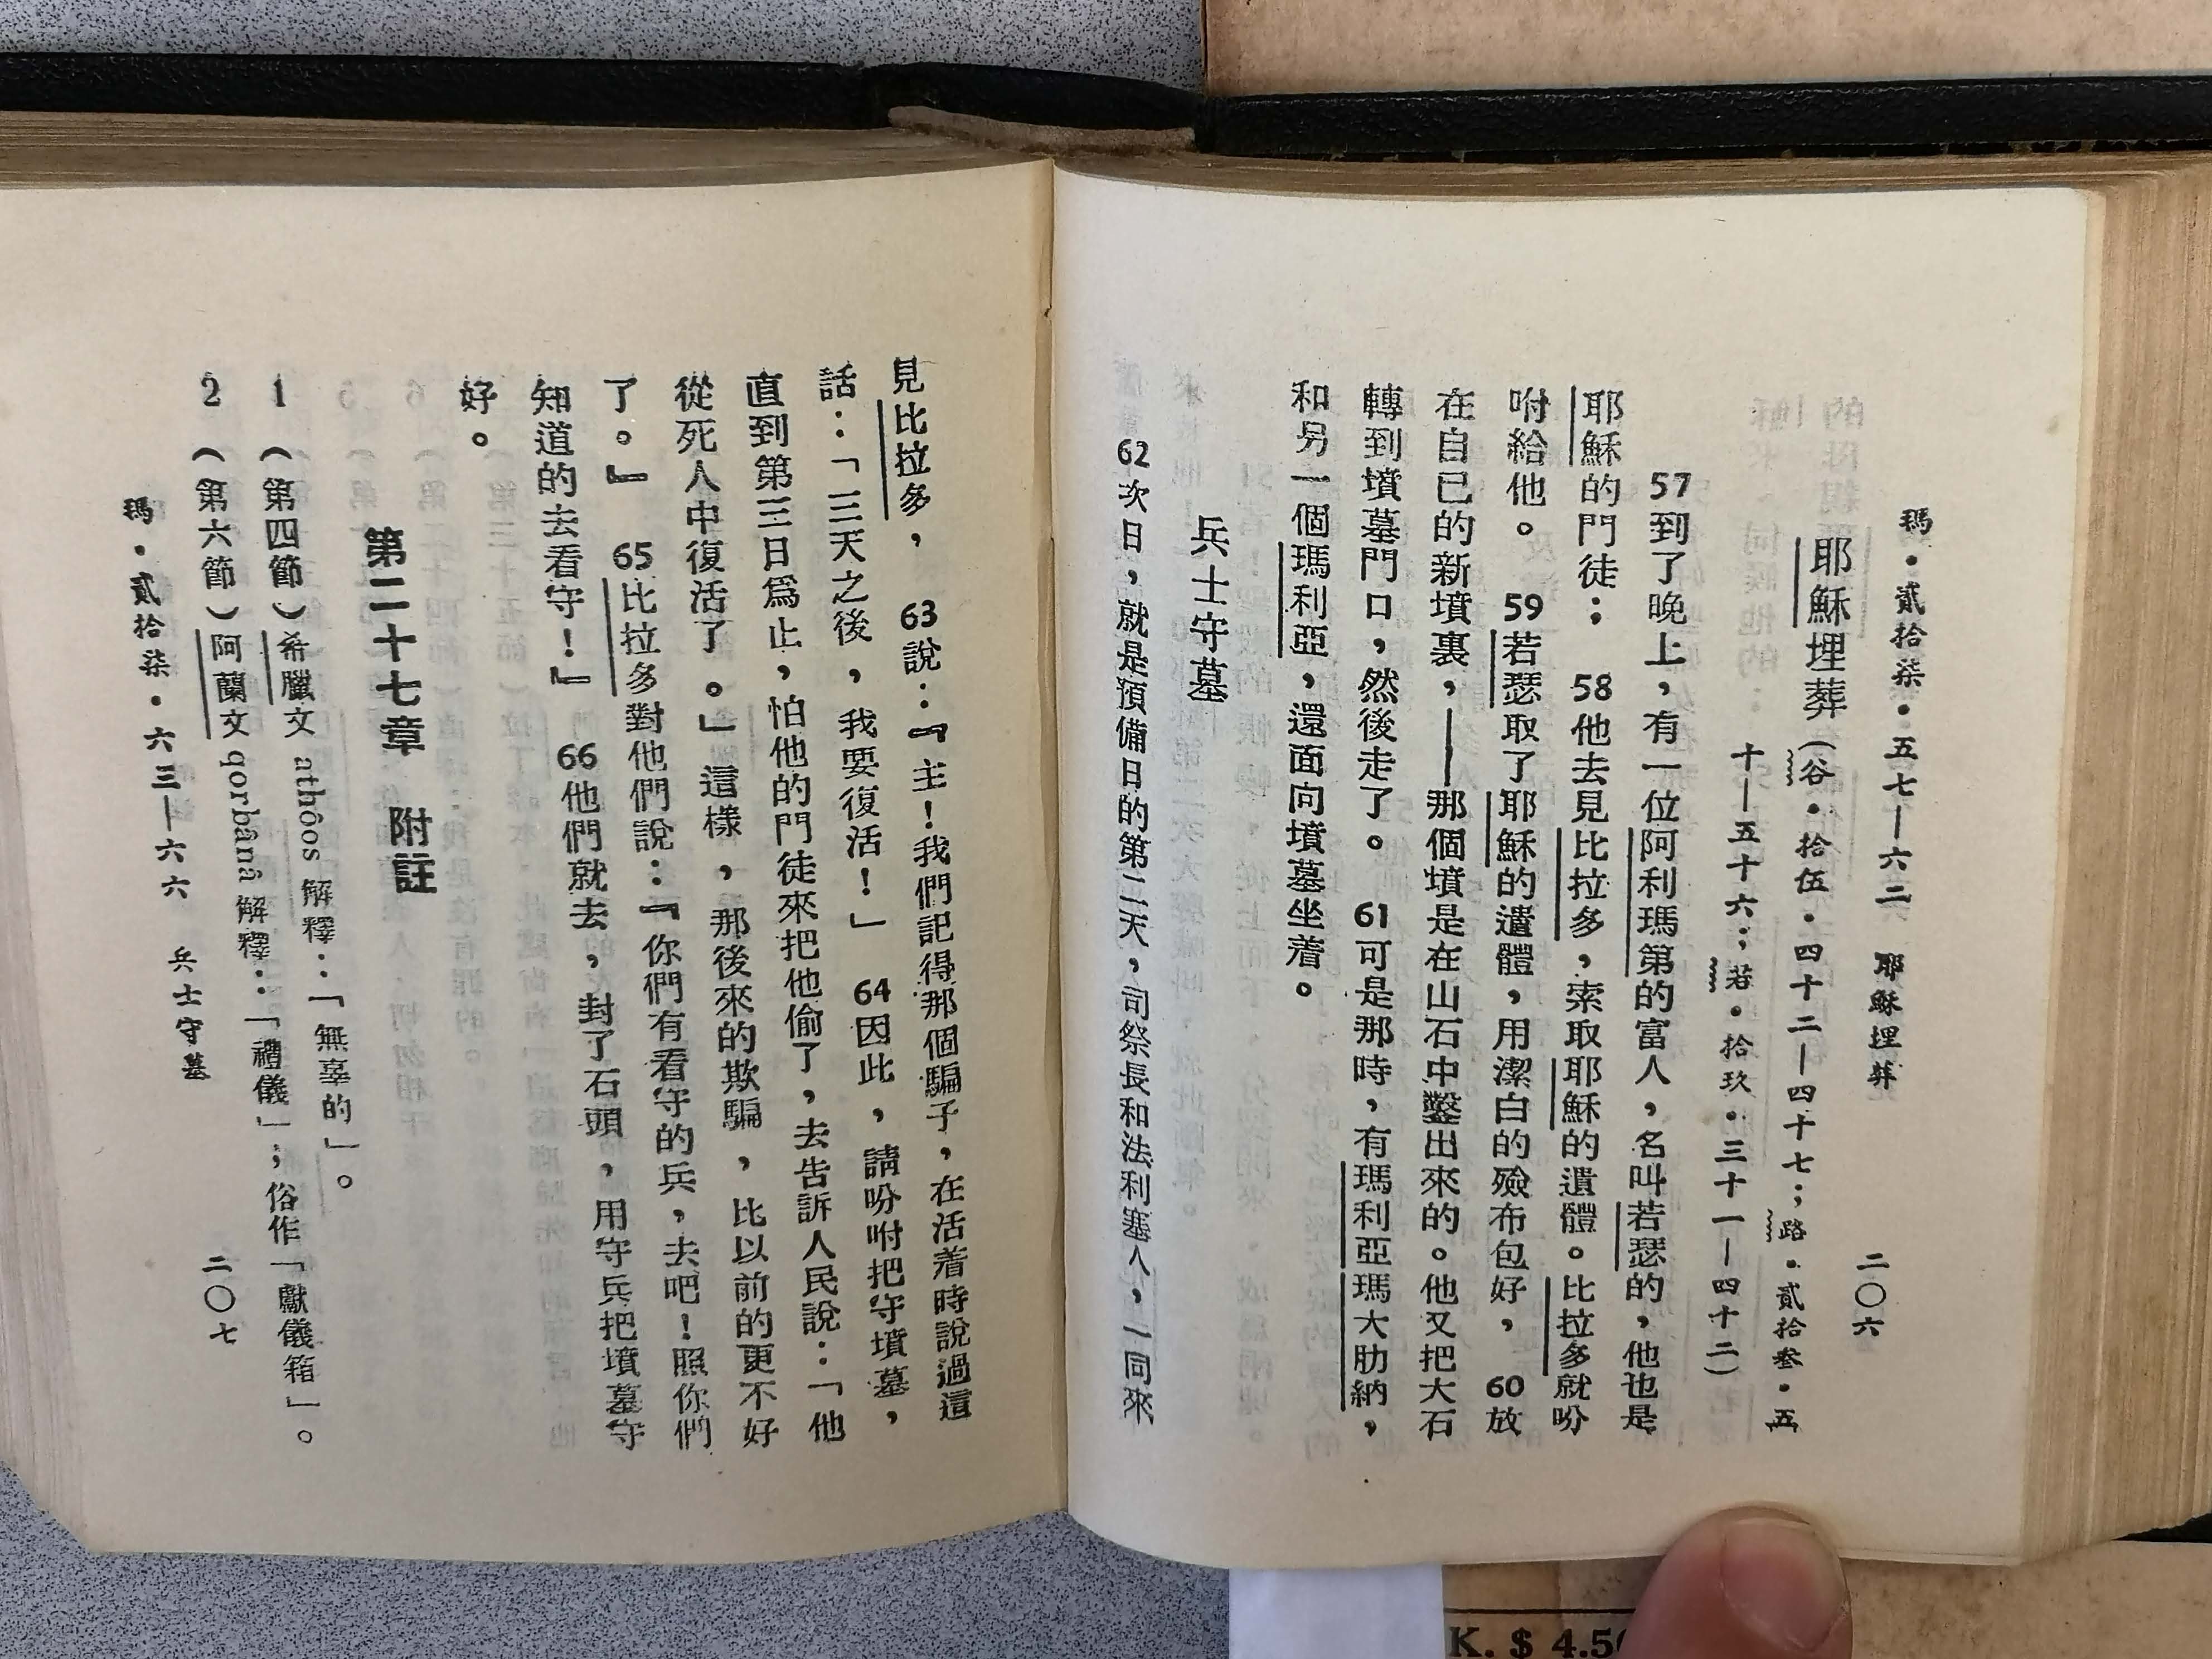 瑪・貳拾柒・五七—六二　耶穌埋葬　二〇六
耶穌埋葬（谷・拾伍・四十二—四十七；路・貳拾叁・五
十—五十六；若・拾玖・三十一—四十二）
57到了晚上，有一位阿利瑪第的富人，名叫若瑟的，他也是
耶穌的門徒；　58他去見比拉多，索取耶穌的遺體。比拉多就吩
咐給他。　59若瑟取了耶穌的遺體，用潔白的殮布包好，　60放
在自己的新墳裏，——那個墳是在山石中鑿出來的。他又把大石
轉到墳墓門口，然後走了。　61可是那時，有瑪利亞瑪大肋納，
和另一個瑪利亞，還面向墳墓坐着。
兵士守墓
62次日，就是預備日的第二天，司祭長和法利塞人，一同來
見比拉多，　63說：『主！我們記得那個騙子，在活着時說過這
話：「三天之後，我要復活！」　64因此，請吩咐把守墳墓，
直到第三日爲止，怕他的門徒來把他偷了，去告訴人民說：「他
從死人中復活了。」這樣，那後來的欺騙，比以前的更不好
了。』　65比拉多對他們說：『你們有看守的兵，去吧！照你們
知道的去看守！』　66他們就去，封了石頭，用守兵把墳墓守
好。
第二十七章　附註
1（第四節）希臘文 athôos 解釋：「無辜的」。
2（第六節）阿蘭文 qorbânâ 解釋：「禮儀」；俗作「獻儀箱」。
瑪・貳拾柒・六三—六六　兵士守墓　二〇七
K. $ 4.50